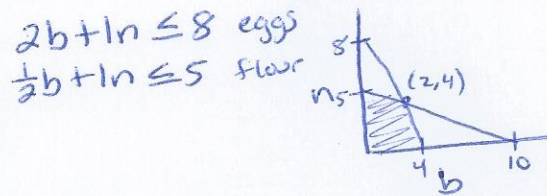 2b+1n ≤ 8 eggs
½b+1n ≤ 5 flour
8
n 5
(2,4)
4
10
b